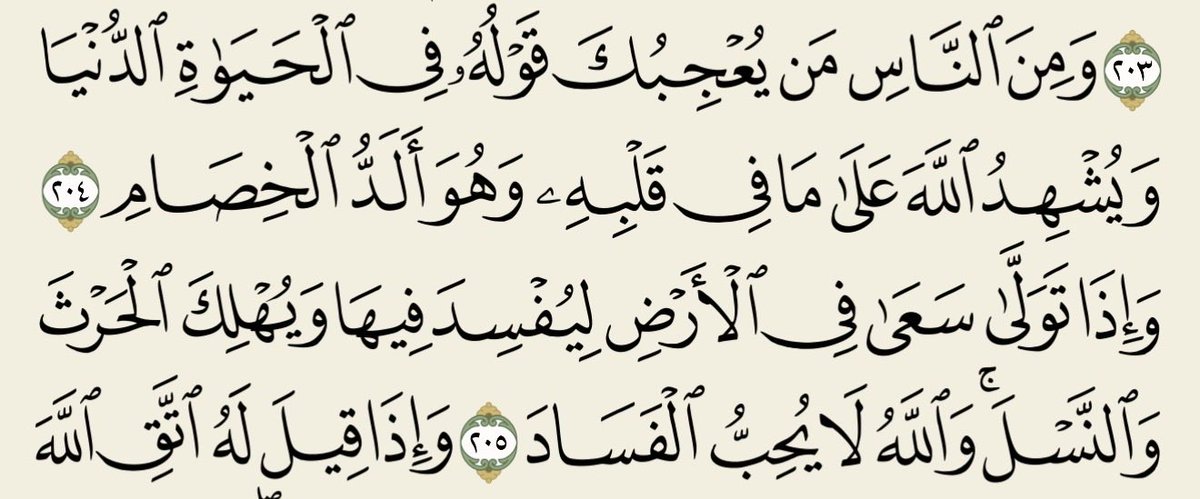 ٢٠٣ وَمِنَ ٱلنَّاسِ مَن يُعۡجِبُكَ قَوۡلُهُۥ فِي ٱلۡحَيَوٰةِ ٱلدُّنۡيَا
وَيُشۡهِدُ ٱللَّهَ عَلَىٰ مَا فِي قَلۡبِهِۦ وَهُوَ أَلَدُّ ٱلۡخِصَامِ ٢٠٤
وَإِذَا تَوَلَّىٰ سَعَىٰ فِي ٱلۡأَرۡضِ لِيُفۡسِدَ فِيهَا وَيُهۡلِكَ ٱلۡحَرۡثَ
وَٱلنَّسۡلَۚ وَٱللَّهُ لَا يُحِبُّ ٱلۡفَسَادَ ٢٠٥ وَإِذَا قِيلَ لَهُ ٱتَّقِ ٱللَّهَ